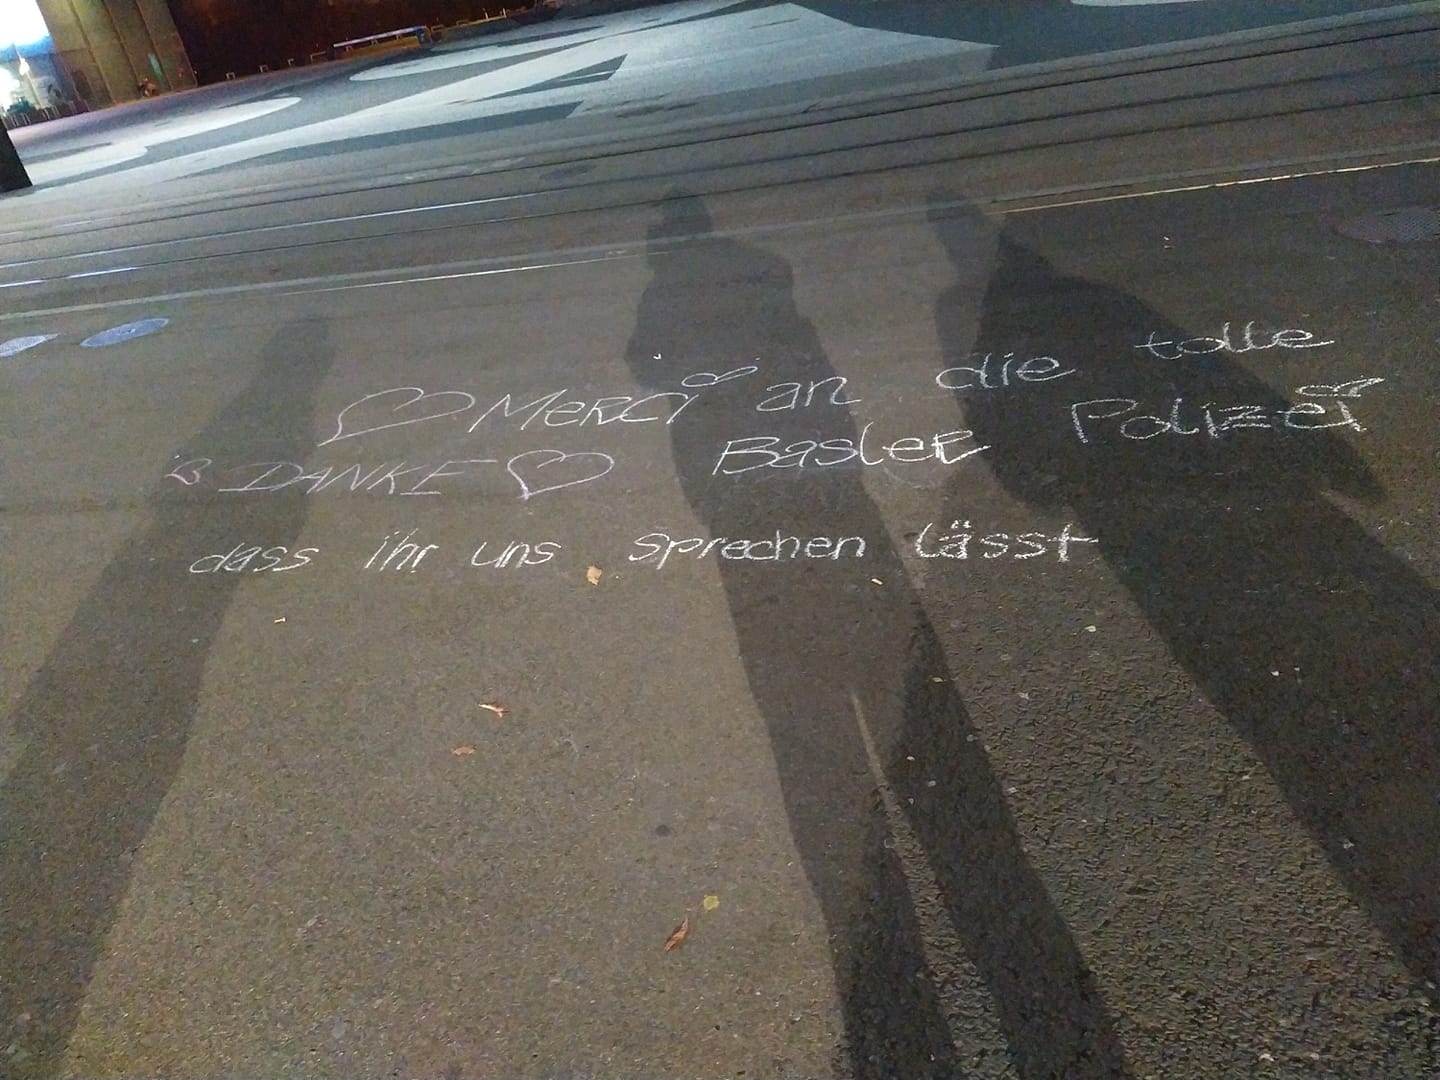 Merci an die tolle
DANKE Basler Polizei
dass ihr uns sprechen lässt